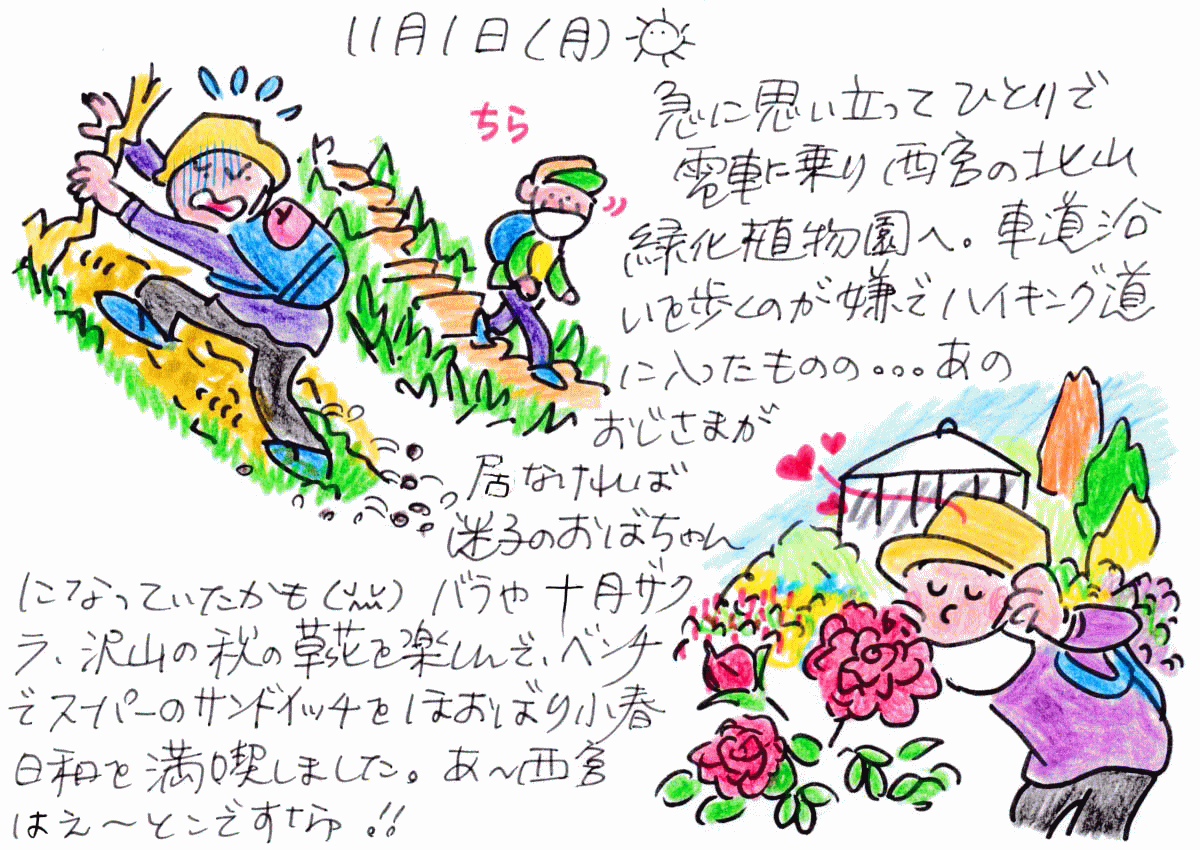 11月1日(月)
ちら
急に思い立ってひとりで
電車に乗り西宮の北山
緑化植物園へ。車道沿
いを歩くのが嫌でハイキング道
に入ったものの...あの
おじさまが
居なければ
迷子のおばちゃん
になっていたかも(灬) バラや十月ザク
ラ、沢山の秋の草花を楽しんで、ベンチ
でスーパーのサンドイッチをほおばり小春
日和を満喫しました。あ〜西宮
はえ〜とこですなら!!